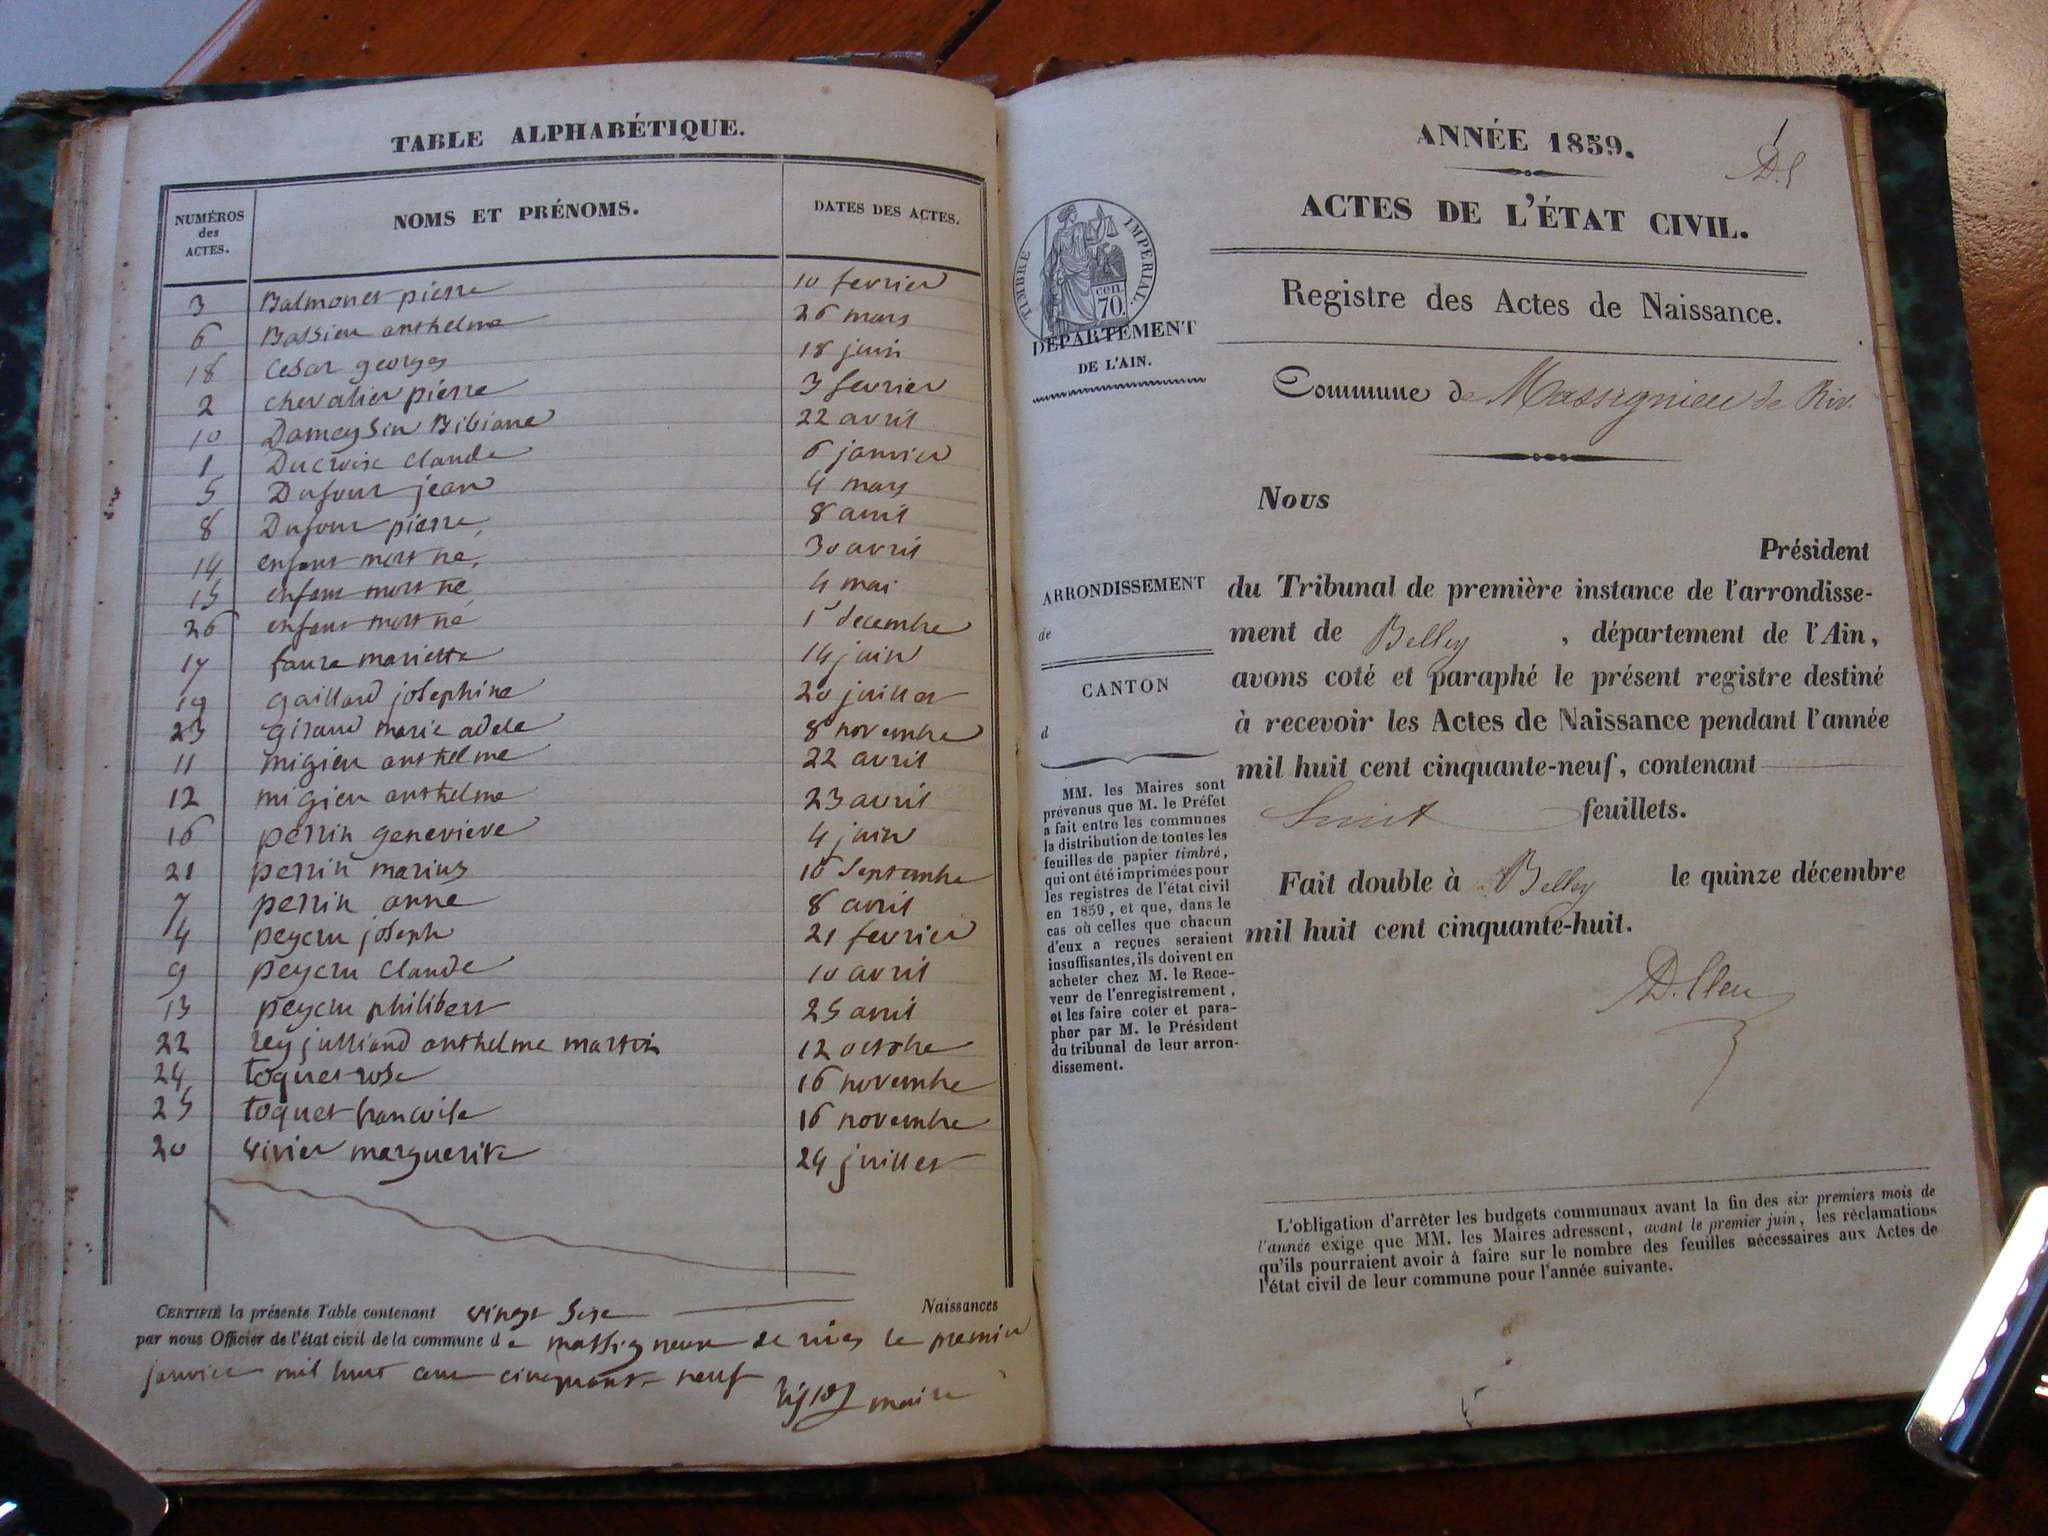 TABLE ALPHABÉTIQUE.
NUMÉROS des ACTES. NOMS ET PRÉNOMS. DATES DES ACTES.
3 Balmonet pierre 10 fevrier
6 Bassieu anthelme 26 mars
18 Cesar georges 18 juin
2 chevalier pierre 3 fevrier
10 Dameysin Bibiane 22 avril
1 Ducroix Claude 6 janvier
5 Dufour jean 4 mars
8 Dufour pierre 8 avril
14 enfant mort né 30 avril
15 enfant mort né 4 mai
26 enfant mort né 1r decembre
17 faure mariette 14 juin
19 gaillard josephine 20 juillet
23 giraud marie adele 8 novembre
11 migieu anthelme 22 avril
12 migieu anthelme 23 avril
16 perrin genevieve 4 juin
21 perrin marius 10 septembre
7 perrin anne 8 avril
4 peycru joseph 21 fevrier
9 peycru Claude 10 avril
13 peycru philibert 25 avril
22 rey julliand anthelme martin 12 octobre
24 toquet rose 16 novembre
25 toquet francoise 16 novembre
20 vivier marguerite 24 juillet
CERTIFIÉ la présente Table contenant vingt sixe Naissances
par nous Officier de l'état civil de la commune de massigneux de rives le premier
janvier mil huit cent cinquante neuf
maire
ANNÉE 1859.
ACTES DE L'ÉTAT CIVIL.
TIMBRE IMPERIAL.
cen. 70.
DÉPARTEMENT
DE L'AIN.
Registre des Actes de Naissance.
Commune de Massignieu de Riv.
Nous
Président
du Tribunal de première instance de l'arrondisse-
ment de Belley, département de l'Ain,
avons coté et paraphé le présent registre destiné
à recevoir les Actes de Naissance pendant l'année
mil huit cent cinquante-neuf, contenant
feuillets.
Fait double à Belley le quinze décembre
mil huit cent cinquante-huit.
ARRONDISSEMENT
de
CANTON
d
MM. les Maires sont
prévenus que M. le Préfet
a fait entre les communes
la distribution de toutes les
feuilles de papier timbré,
qui ont été imprimées pour
les registres de l'état civil
en 1859, et que, dans le
cas où celles que chacun
d'eux a reçues seraient
insuffisantes, ils doivent en
acheter chez M. le Rece-
veur de l'enregistrement,
et les faire coter et para-
pher par M. le Président
du tribunal de leur arron-
dissement.
L'obligation d'arrêter les budgets communaux avant la fin des six premiers mois de
l'année exige que MM. les Maires adressent, avant le premier juin, les réclamations
qu'ils pourraient avoir à faire sur le nombre des feuilles nécessaires aux Actes de
l'état civil de leur commune pour l'année suivante.